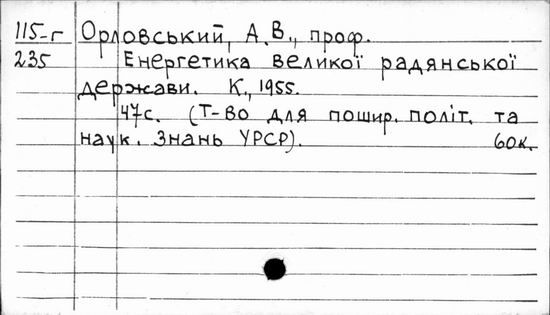 115-г Орловський, А.В., проф.
235 Енергетика великої радянської
держави. К., 1955.
47с. (Т-во для пошир. політ. та
наук. Знань УРСР). 60к.